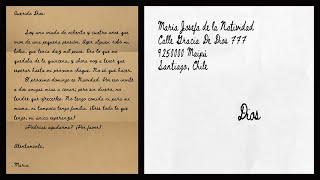 Querido Dios:
Soy una viuda de ochenta y cuatro años que
vive de una pequeña pensión. Ayer alguien robó mi
bolso, que tenía diez mil pesos. Era lo que me
quedaba de la quincena, y ahora voy a tener que
esperar hasta mi próximo cheque. No sé qué hacer.
El próximo domingo es Navidad. Por eso invité
a dos amigas mías a cenar, pero sin dinero, no
tendré qué ofrecerles. No tengo comida ni para mí
misma, ni tampoco tengo familia. ¡Eres todo lo que
tengo, mi única esperanza!
¿Podrías ayudarme? ¡Por favor!
Atentamente,
María
María Josefa de la Natividad
Calle Gracia De Dios 777
9250000 Maipú
Santiago, Chile
Dios